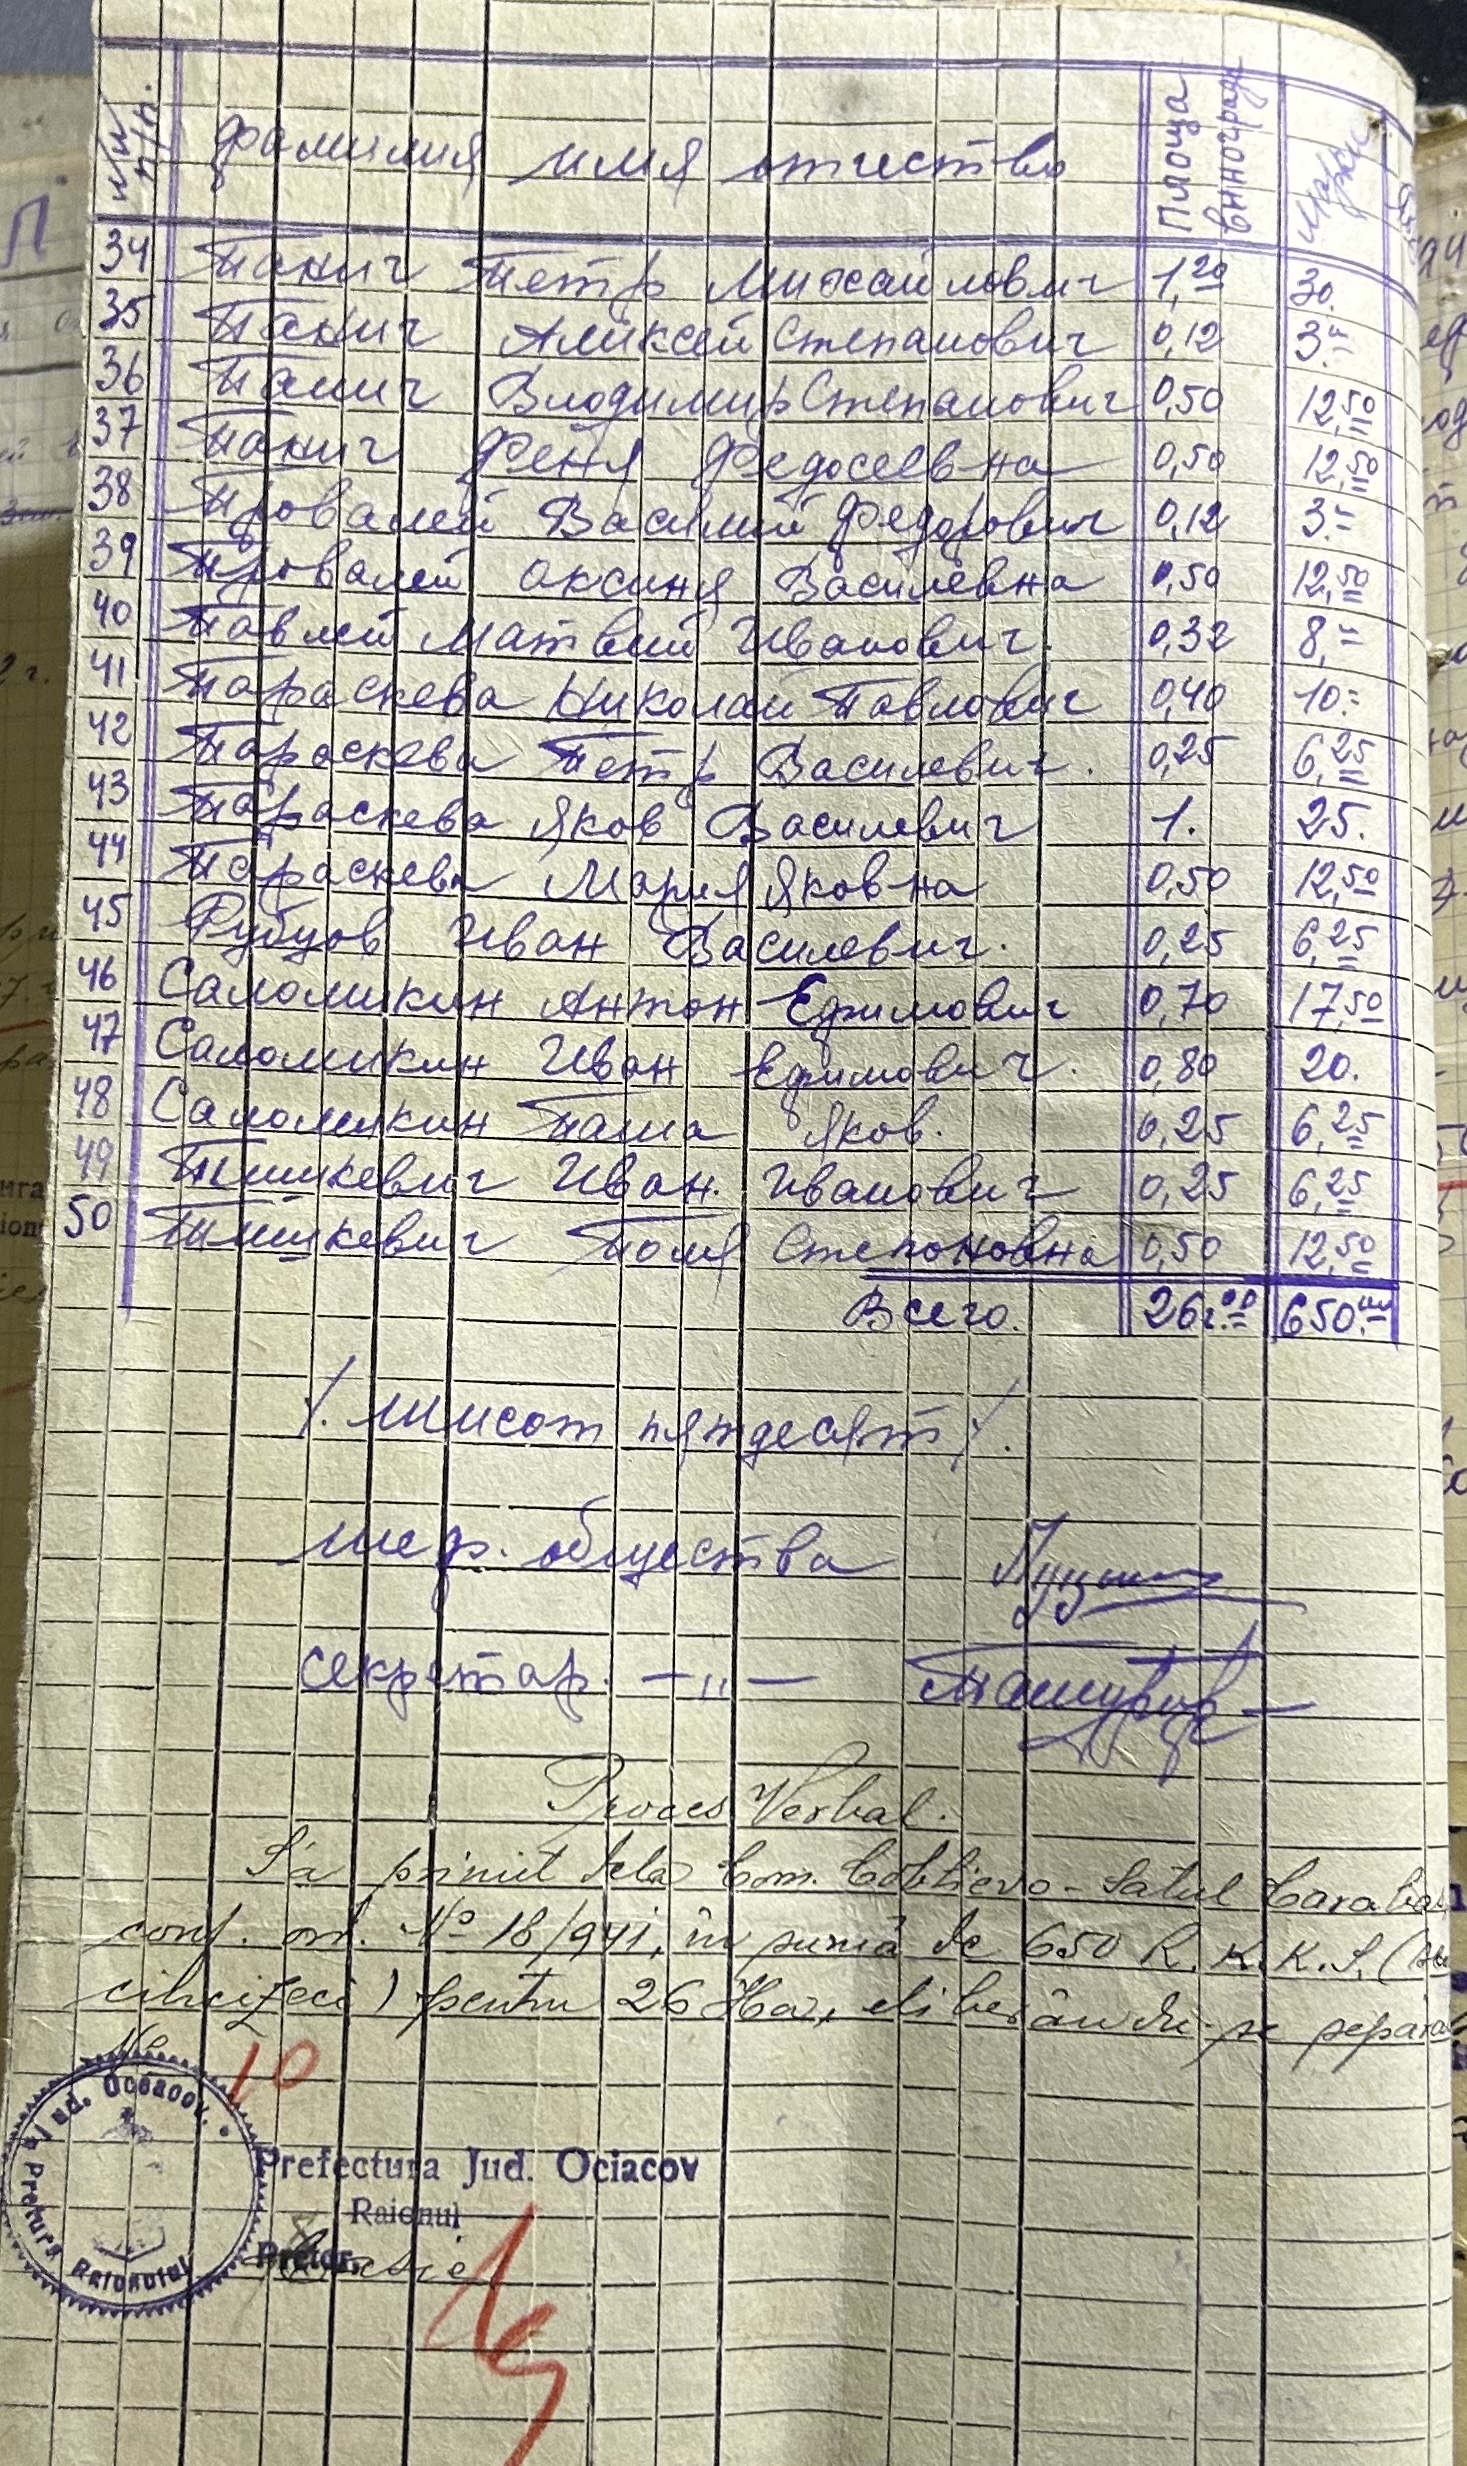 №№ п/п. фамилия имя отчество Площа винограда марки
34 Панич Петр Михайлович 1,20 30.
35 Панич Аликсей Степанович 0,12 3.=
36 Панич Влодимир Степанович 0,50 12,50
37 Панич Феня Федосеевна 0,50 12,50
38 Провалей Василий Федорович 0,12 3.=
39 Провалей Аксиня Василевна 0,50 12,50
40 Павлей Матвей Иванович. 0,32 8,=
41 Параскева Николай Павлович 0,40 10.=
42 Параскева Петр Василевич. 0,25 6,25
43 Параскева Яков Василевич 1. 25.
44 Параскева Мария Яковна 0,50 12,50
45 Рубцов Иван Василевич. 0,25 6,25
46 Саломикин Антон Ефимович 0,70 17,50
47 Саломикин Иван Ефимович. 0,80 20.
48 Саломикин Паша Яков. 0,25 6,25
49 Тишкевич Иван. Иванович 0,25 6,25
50 Тишкевич Поля Степоновна 0,50 12,50
Всего. 26г.00 650.
/. шисот пятдесят /.
шеф. общества
секретар. —„—
Proces Verbal.
S'a primit dela Com. Coblievo - Satul
conf. ord. No 18/941, în sumă de 650 R.K.K.S.
cincizeci) pentru 26 Ha, eliberându-se
10
Jud. Oceacov.
Pretura Raionului
Prefectura Jud. Ociacov
Raionul
Pretor,